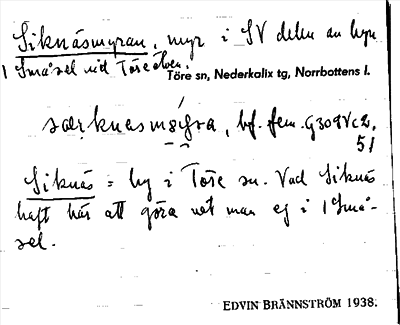 Siknäsmyran, myr i SV delen av byn
Småsel vid Töre älven.
Töre sn, Nederkalix tg, Norrbottens l.
bf. fem.
51
Siknäs = by i Töre sn. Vad Siknäs
haft här att göra vet man ej i Små-
sel.
EDVIN BRÄNNSTRÖM 1938.